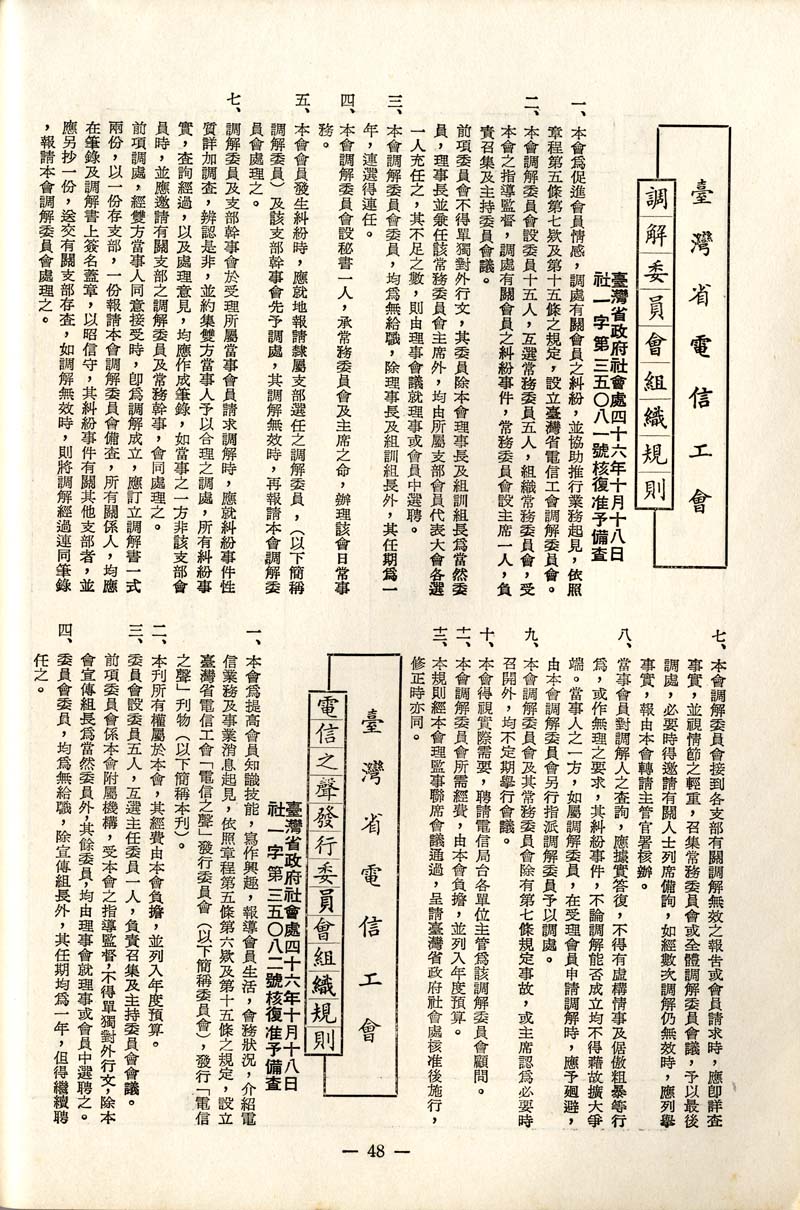 臺灣省電信工會
調解委員會組織規則
臺灣省政府社會處四十六年十月十八日
社一字第三五〇八一號核復准予備查
一、本會爲促進會員情感,調處有關會員之糾紛,並協助推行業務起見,依照
章程第五條第七欵及第十五條之規定,設立臺灣省電信工會調解委員會。
二、本會調解委員會設委員十五人,互選常務委員五人,組織常務委員會,受
本會之指導監督,調處有關會員之糾紛事件,常務委員會設主席一人,負
責召集及主持委員會議。
前項委員會不得單獨對外行文,其委員除本會理事長及組訓組長爲當然委
員,理事長並兼任該常務委員會主席外,均由所屬支部會員代表大會各選
一人充任之,其不足之數,則由理事會議就理事或會員中選聘。
三、本會調解委員會委員,均爲無給職,除理事長及組訓組長外,其任期爲一
年,連選得連任。
四、本會調解委員會設秘書一人,承常務委員會及主席之命,辦理該會日常事
務。
五、本會會員發生糾紛時,應就地報請隸屬支部選任之調解委員,(以下簡稱
調解委員)及該支部幹事會先予調處,其調解無效時,再報請本會調解委
員會處理之。
七、調解委員及支部幹事會於受理所屬當事會員請求調解時,應就糾紛事件性
質詳加調查,辨認是非,並約集雙方當事人予以合理之調處,所有糾紛事
實,查詢經過,以及處理意見,均應作成筆錄,如當事之一方非該支部會
員時,並應邀請有關支部之調解委員及常務幹事,會同處理之。
前項調處,經雙方當事人同意接受時,卽爲調解成立,應訂立調解書一式
兩份,以一份存支部,一份報請本會調解委員會備查,所有關係人,均應
在筆錄及調解書上簽名蓋章,以昭信守,其糾紛事件有關其他支部者,並
應另抄一份,送交有關支部存查,如調解無效時,則將調解經過連同筆錄
,報請本會調解委員會處理之。
七、本會調解委員會接到各支部有關調解無效之報告或會員請求時,應卽詳查
事實,並視情節之輕重,召集常務委員會或全體調解委員會議,予以最後
調處,必要時得邀請有關人士列席備詢,如經數次調解仍無效時,應列舉
事實,報由本會轉請主管官署核辦。
八、當事會員對調解人之查詢,應據實答復,不得有虛構情事及倨傲粗暴等行
爲,或作無理之要求,其糾紛事件,不論調解能否成立均不得藉故擴大爭
端。當事人之一方,如屬調解委員,在受理會員申請調解時,應予廻避,
由本會調解委員會另行指派調解委員予以調處。
九、本會調解委員會及其常務委員會除有第七條規定事故,或主席認爲必要時
召開外,均不定期舉行會議。
十、本會得視實際需要,聘請電信局台各單位主管爲該調解委員會顧問。
十一、本會調解委員會所需經費,由本會負擔,並列入年度預算。
十二、本規則經本會理監事聯席會議通過,呈請臺灣省政府社會處核准後施行,
修正時亦同。
臺灣省電信工會
電信之聲發行委員會組織規則
臺灣省政府社會處四十六年十月十八日
社一字第三五〇八二號核復准予備查
一、本會爲提高會員知識技能,寫作興趣,報導會員生活,會務狀況,介紹電
信業務及事業消息起見,依照章程第五條第六欵及第十五條之規定,設立
臺灣省電信工會「電信之聲」發行委員會(以下簡稱委員會),發行「電信
之聲」刊物(以下簡稱本刊)。
二、本刊所有權屬於本會,其經費由本會負擔,並列入年度預算。
三、委員會設委員五人,互選主任委員一人,負責召集及主持委員會會議。
前項委員會係本會附屬機構,受本會之指導監督,不得單獨對外行文,除本
會宣傳組長爲當然委員外,其餘委員,均由理事會就理事或會員中選聘之。
四、委員會委員,均爲無給職,除宣傳組長外,其任期均爲一年,但得繼續聘
任之。
— 48 —